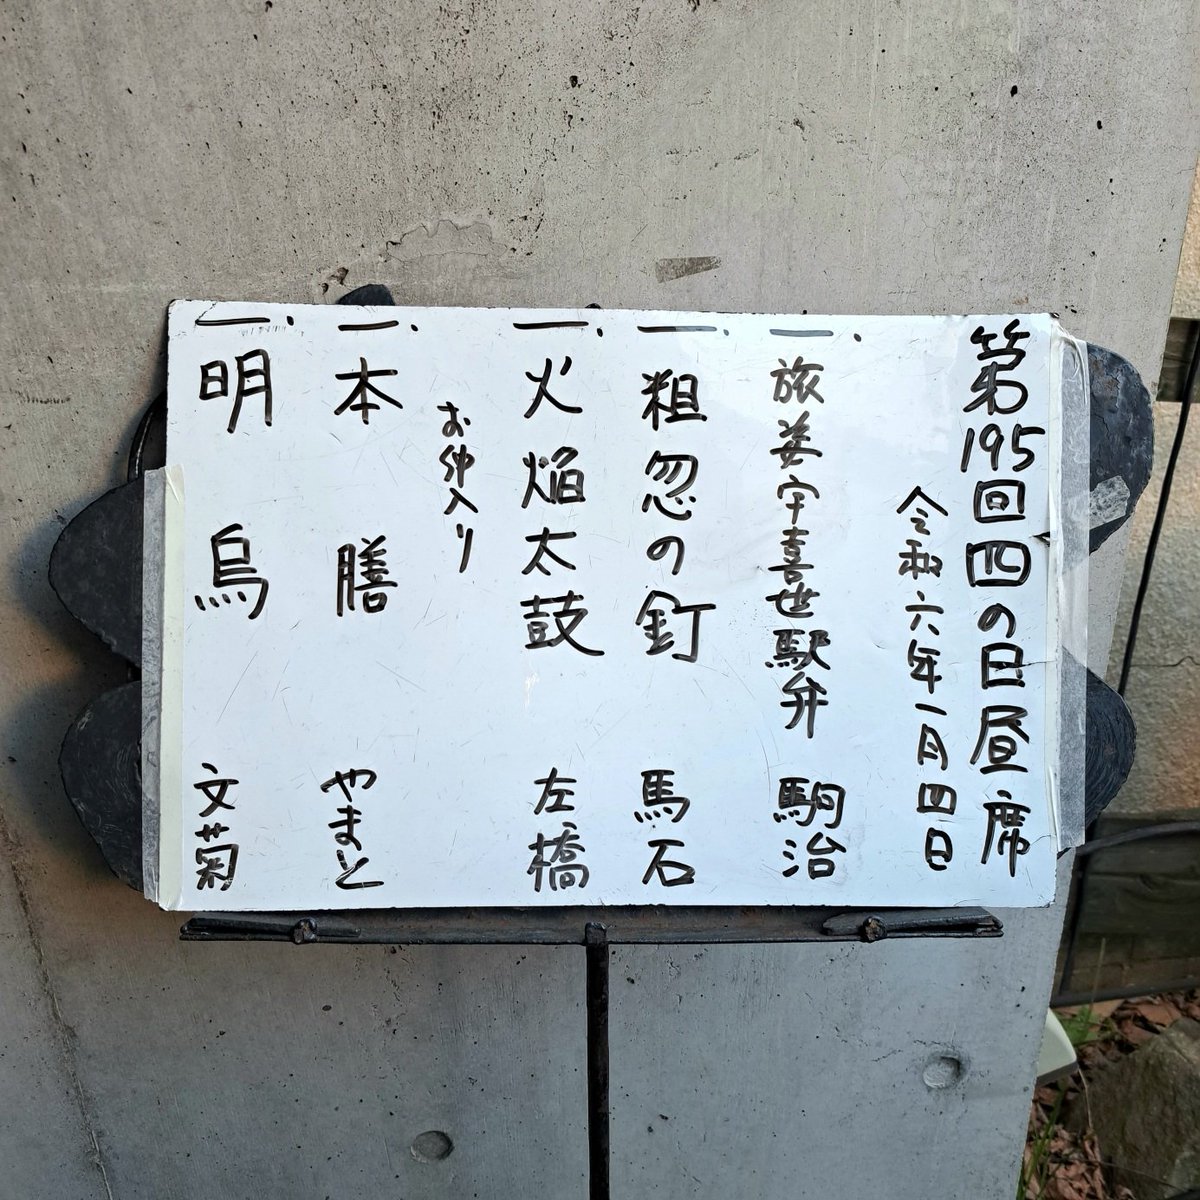 第195回四の日昼席
令和六年一月四日
一. 旅姿宇喜世駅弁 駒治
一. 粗忽の釘 馬石
一.火焔太鼓 左橋
お仲入り
一. 本膳 やまと
一. 明烏 文菊